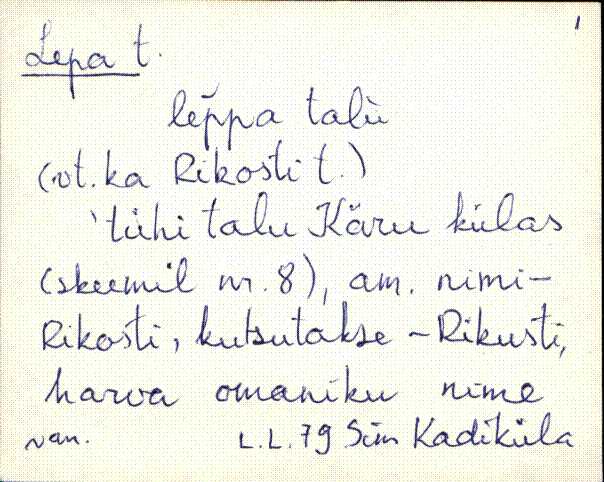 1
Lepa t.
lĕppa talù
(vt. ka Rikosti t.)
'tühi talu Käru külas
(skeemil nr. 8), am. nimi-
Rikosti, kutsutakse - Rikusti,
harva omaniku nime
van. L.L. 79 Sim Kadiküla